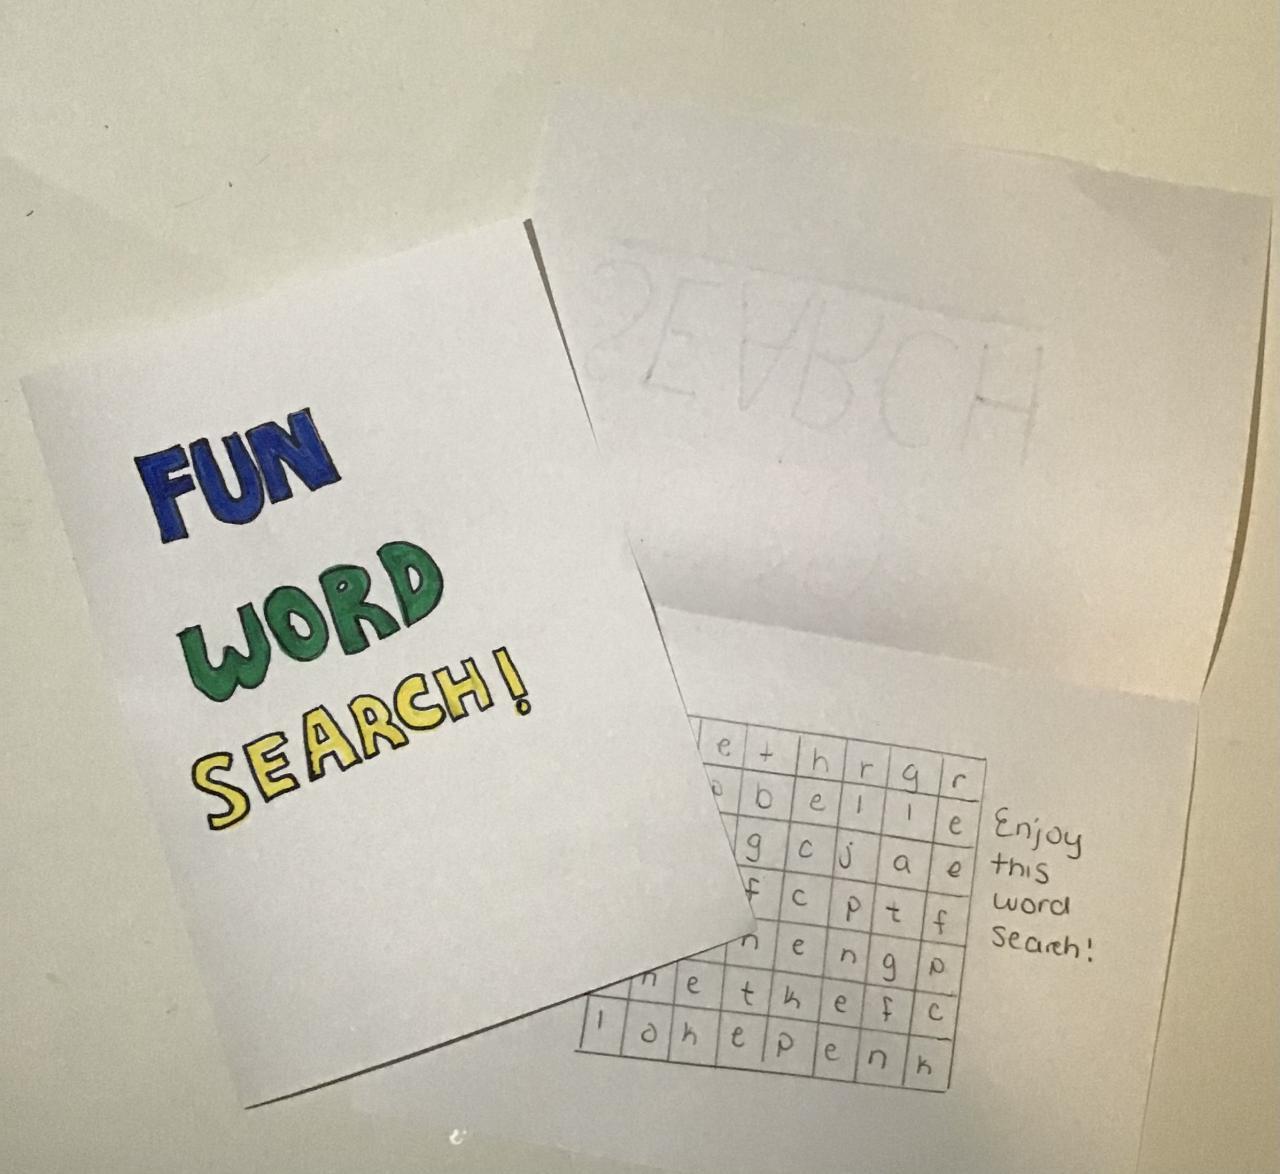 FUN
WORD
SEARCH!
SEARCH
e t h r g r
p b e l l e
g c j a e
f c p t f
n e n g p
n e t h e f c
l o h e p e n h
Enjoy
this
word
search!